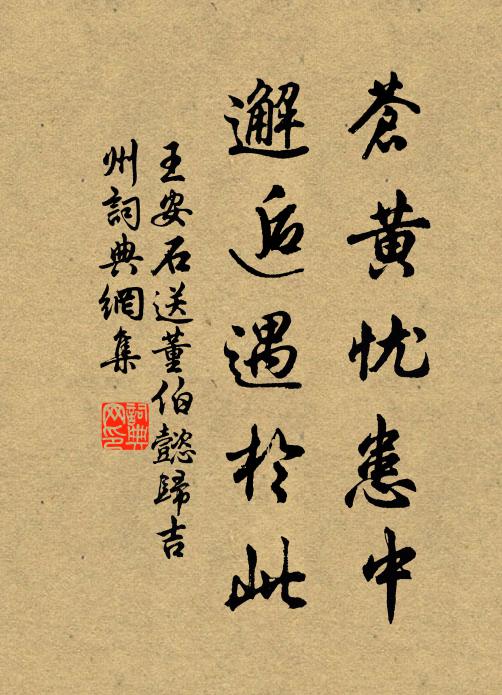 蒼黄忧患中
邂逅遇於此
王安石送董伯懿歸吉
州詞典網集
詞典网印